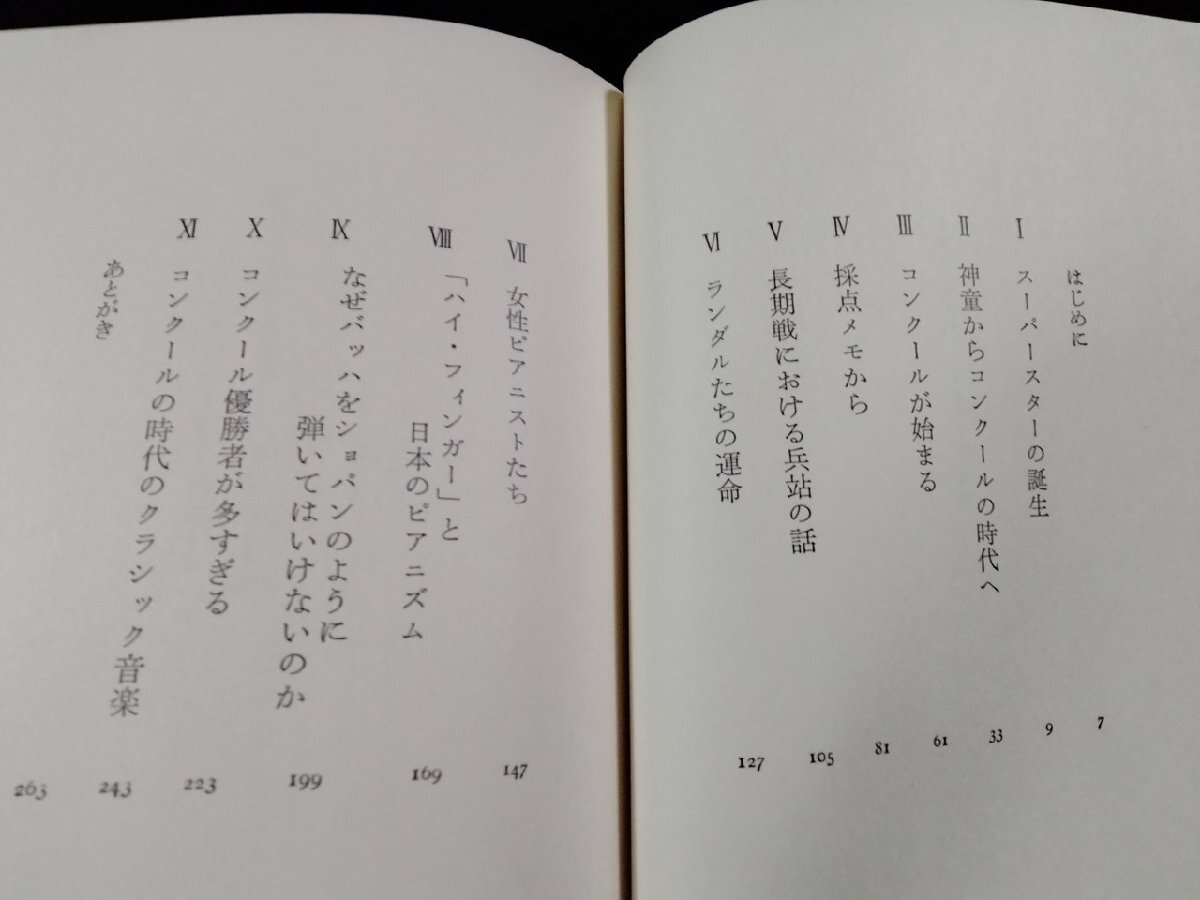 はじめに 7
Ⅰ スーパースターの誕生 9
Ⅱ 神童からコンクールの時代へ 33
Ⅲ コンクールが始まる 61
Ⅳ 採点メモから 81
Ⅴ 長期戦における兵站の話 105
Ⅵ ランダルたちの運命 127
Ⅶ 女性ピアニストたち 147
Ⅷ 「ハイ・フィンガー」と
日本のピアニズム 169
Ⅸ なぜバッハをショパンのように
弾いてはいけないのか 199
Ⅹ コンクール優勝者が多すぎる 223
Ⅺ コンクールの時代のクラシック音楽 243
あとがき 263